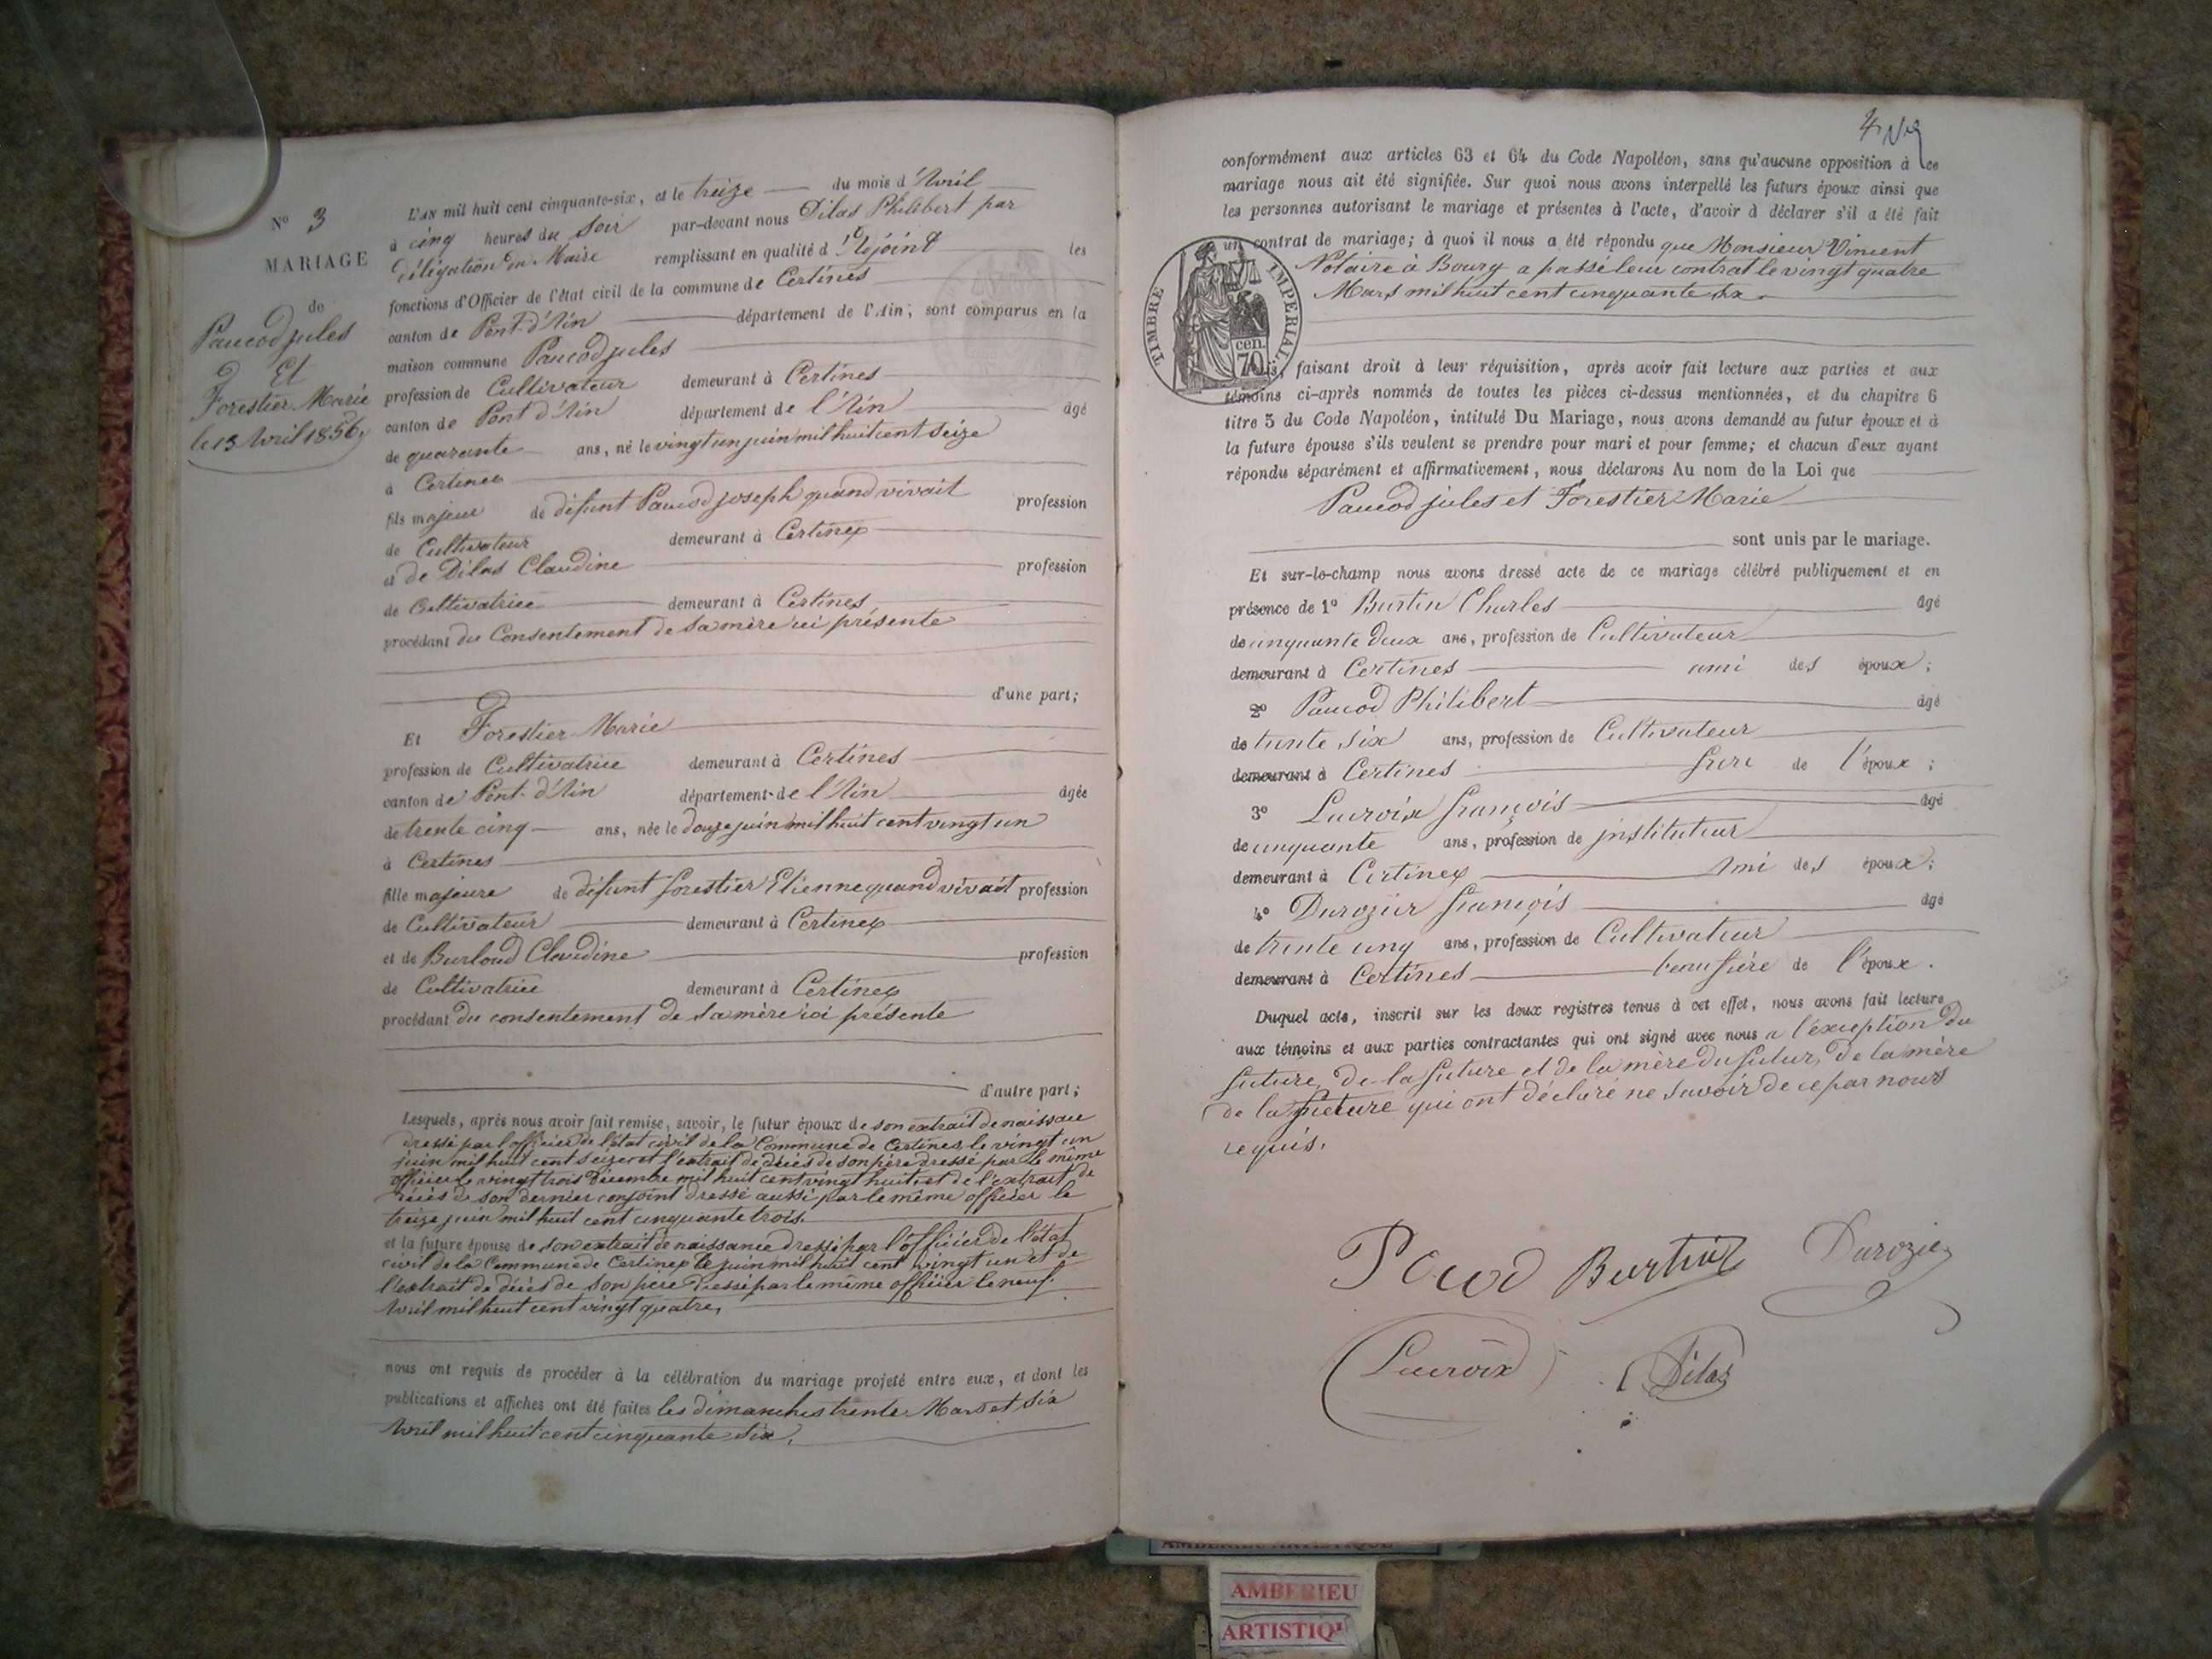 N° 3
MARIAGE
de
Paucod jules
Et
Forestier Marie
le 13 Avril 1856,
L'AN mil huit cent cinquante-six, et le treize du mois d'Avril
à cinq heures du Soir par-devant nous Dilas Philibert par
déligation du Maire remplissant en qualité d'Adjoint les
fonctions d'Officier de l'état civil de la commune de Certines
canton de Pont-d'Ain département de l'Ain, sont comparus en la
maison commune Paucod jules
profession de Cultivateur demeurant à Certines
canton de Pont d'Ain département de l'Ain âgé
de quarante ans, né le vingt un juin mil huit cent seize
à Certines
fils majeur de défunt Paucod joseph quand vivait profession
de Cultivateur demeurant à Certines
et de Dilas Claudine profession
de Cultivatrice demeurant à Certines
procédant du Consentement de sa mère ici présente
d'une part;
Et Forestier Marie
profession de Cultivatrice demeurant à Certines
canton de Pont-d'Ain département de l'Ain âgée
de trente cinq ans, née le douze juin mil huit cent vingt un
à Certines
fille majeure de défunt forestier Etienne quand vivait profession
de Cultivateur demeurant à Certines
et de Burloud Claudine profession
de Cultivatrice demeurant à Certines
procédant du consentement de sa mère ici présente
d'autre part;
Lesquels, après nous avoir fait remise, savoir, le futur époux de son extrait de naissance
dressé par l'officier de l'état civil de la Commune de Certines, le vingt un
juin mil huit cent seize et l'extrait de décès de son père dressé par le même
officier le vingt trois Décembre mil huit cent vingt huit, et de l'extrait de
décès de son dernier conjoint dressé aussi par le même officier le
treize juin mil huit cent cinquante trois.
et la future épouse de son extrait de naissance dressé par l'officier de l'état
civil de la Commune de Certines le juin mil huit cent vingt un et de
l'extrait de décès de son père dressé par le même officier le neuf
Avril mil huit cent vingt quatre,
nous ont requis de procéder à la célébration du mariage projeté entre eux, et dont les
publications et affiches ont été faites les dimanches trente Mars et six
Avril mil huit cent cinquante six,
4
conformément aux articles 63 et 64 du Code Napoléon, sans qu'aucune opposition à ce
mariage nous ait été signifiée. Sur quoi nous avons interpellé les futurs époux ainsi que
les personnes autorisant le mariage et présentes à l'acte, d'avoir à déclarer s'il a été fait
un contrat de mariage; à quoi il nous a été répondu que Monsieur Vincent
Notaire à Bourg a passé leur contrat le vingt quatre
Mars mil huit cent cinquante six.
TIMBRE IMPERIAL
70 cen.
faisant droit à leur réquisition, après avoir fait lecture aux parties et aux
témoins ci-après nommés de toutes les pièces ci-dessus mentionnées, et du chapitre 6
titre 5 du Code Napoléon, intitulé Du Mariage, nous avons demandé au futur époux et à
la future épouse s'ils veulent se prendre pour mari et pour femme; et chacun d'eux ayant
répondu séparément et affirmativement, nous déclarons Au nom de la Loi que
Paucod jules et Forestier Marie
sont unis par le mariage.
Et sur-le-champ nous avons dressé acte de ce mariage célébré publiquement et en
présence de 1° Burtin Charles âgé
de cinquante deux ans, profession de Cultivateur
demeurant à Certines ami des époux;
2° Paucod Philibert âgé
de trente six ans, profession de Cultivateur
demeurant à Certines frere de l'époux;
3° Lacroix françois âgé
de cinquante ans, profession de jnstituteur
demeurant à Certines Ami des époux;
4° Durozier françois âgé
de trente cinq ans, profession de Cultivateur
demeurant à Certines beau frère de l'époux.
Duquel acte, inscrit sur les deux registres tenus à cet effet, nous avons fait lecture
aux témoins et aux parties contractantes qui ont signé avec nous a l'éxception du
futur, de la future et de la mère du futur, de la mère
de la future qui ont déclaré ne savoir de ce par nous
requis.
Pocod Burtin Durozier
Lacroix Dilas
AMBERIEU ARTISTIQUE
AMBERIEU
ARTISTIQ